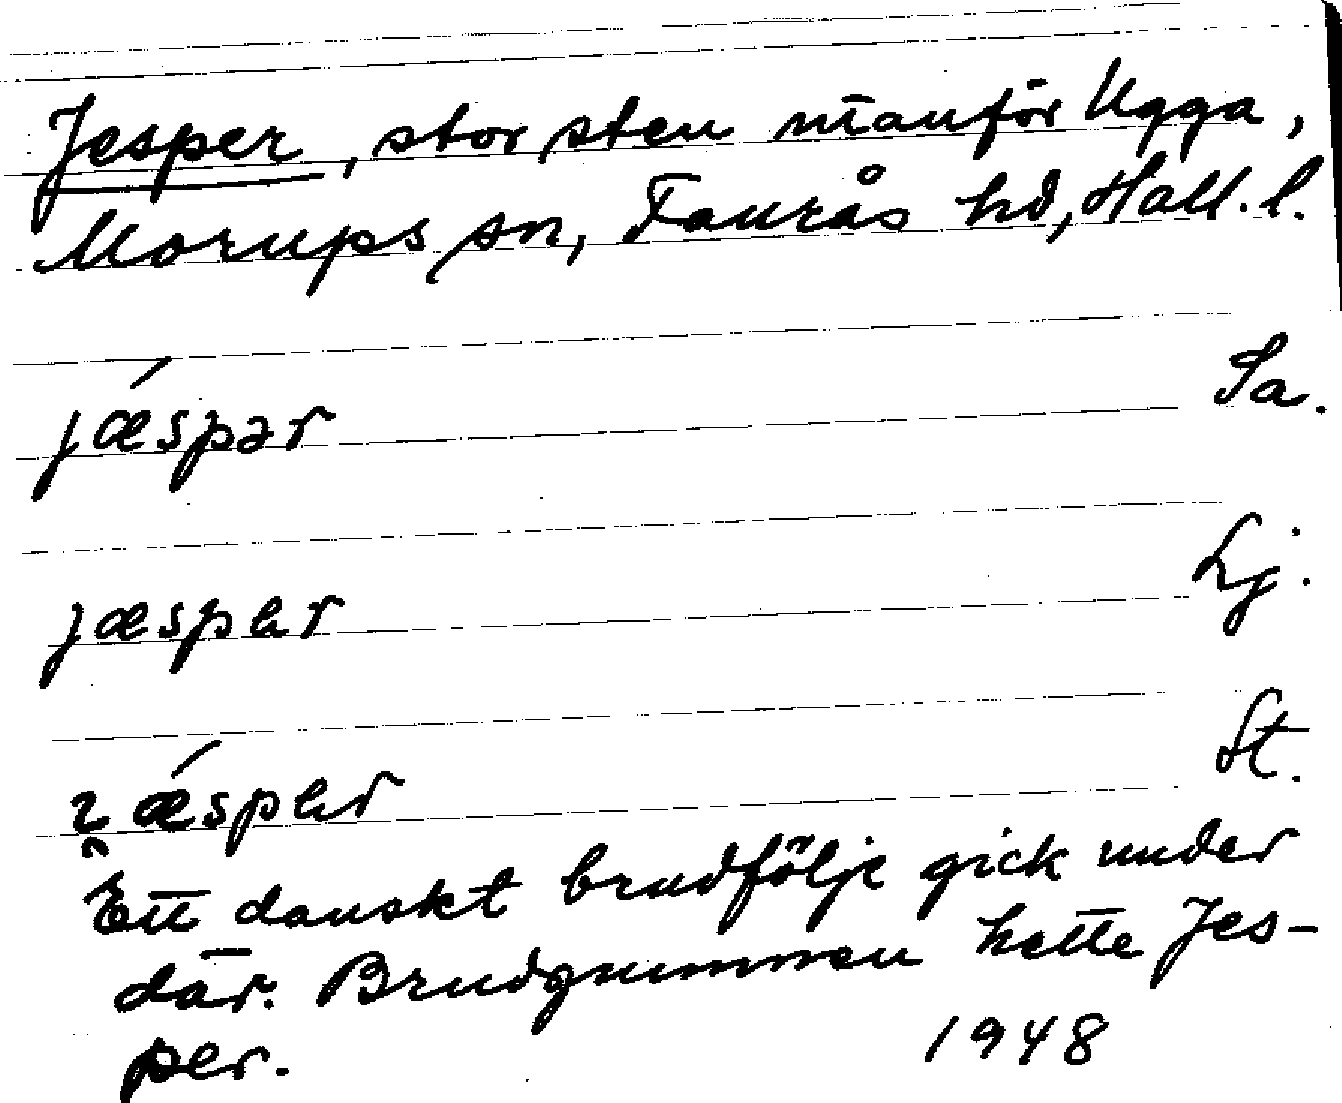 Jesper, stor sten utanför Ugga,
Morups sn, Faurås hd, Hall. l.
jǽspər Sa.
jæspər Lj.
ı̯ǽspər St.
Ett danskt brudföljе gick under
där. Brudgummen hette Jes-
per. 1948